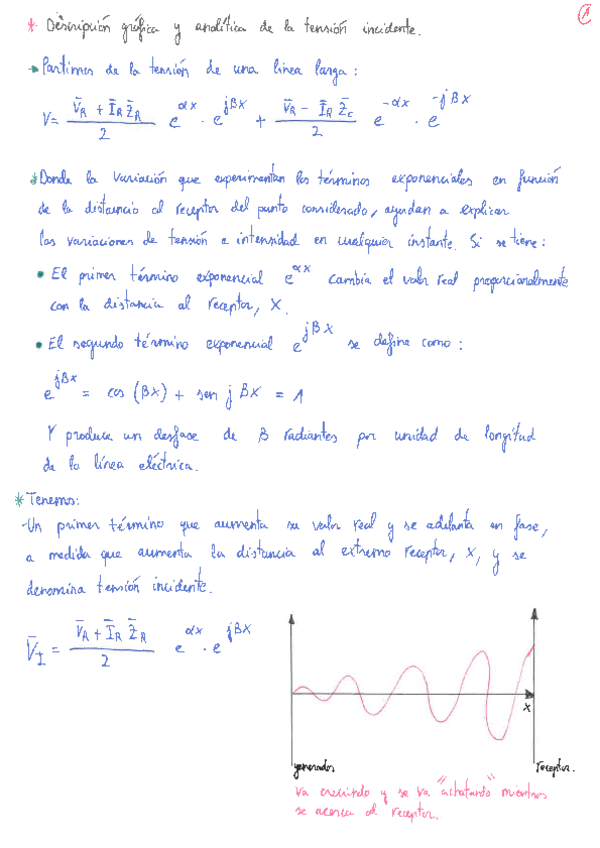 * Descripción gráfica y analítica de la tensión incidente.
→ Partimos de la tensión de una linea larga:
V = (V̄R + ĪR Z̄R)/2 e^αx · e^jβx + (V̄R - ĪR Z̄c)/2 e^-αx · e^-jβx
* Donde la variación que experimentan los términos exponenciales en función
de la distancia al receptor del punto considerado, ayudan a explicar
las variaciones de tensión e intensidad en cualquier instante. Si se tiene:
• El primer término exponencial e^αx cambia el valor real proporcionalmente
con la distancia al receptor, X.
• El segundo término exponencial e^jβx se define como:
e^jβx = cos (βx) + sen j βx = 1
Y produce un desfase de β radiantes por unidad de longitud
de la línea eléctrica.
* Tenemos:
-Un primer término que aumenta su valor real y se adelanta en fase,
a medida que aumenta la distancia al extremo receptor, x, y se
denomina tensión incidente.
V̄I = (V̄R + ĪR Z̄R)/2 e^αx · e^jβx
x
generador
receptor.
va creciendo y se va "achatando" mientras
se acerca al receptor.